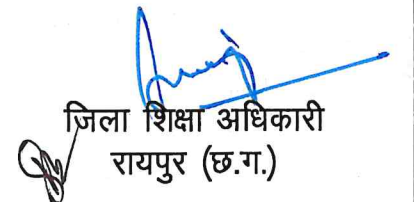 जिला शिक्षा अधिकारी
रायपुर (छ.ग.)